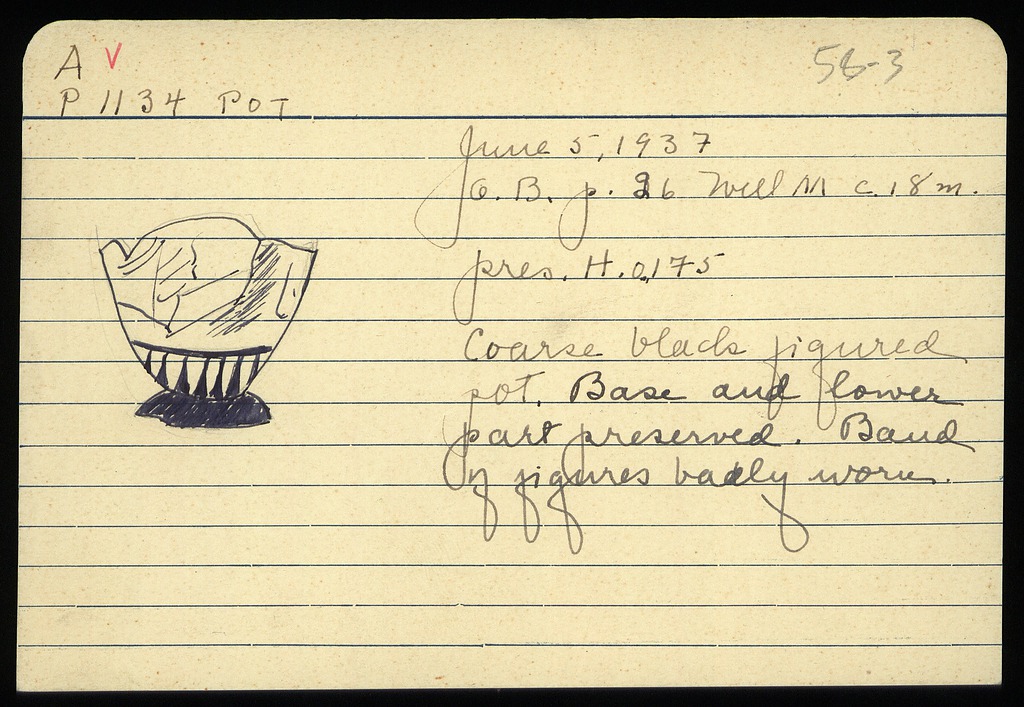 A V
58-3
P 1134 POT
June 5, 1937
G.B. p. 26 Well M c. 18 m.
pres. H. 0,175
Coarse black figured
pot. Base and lower
part preserved. Band
of figures badly worn.